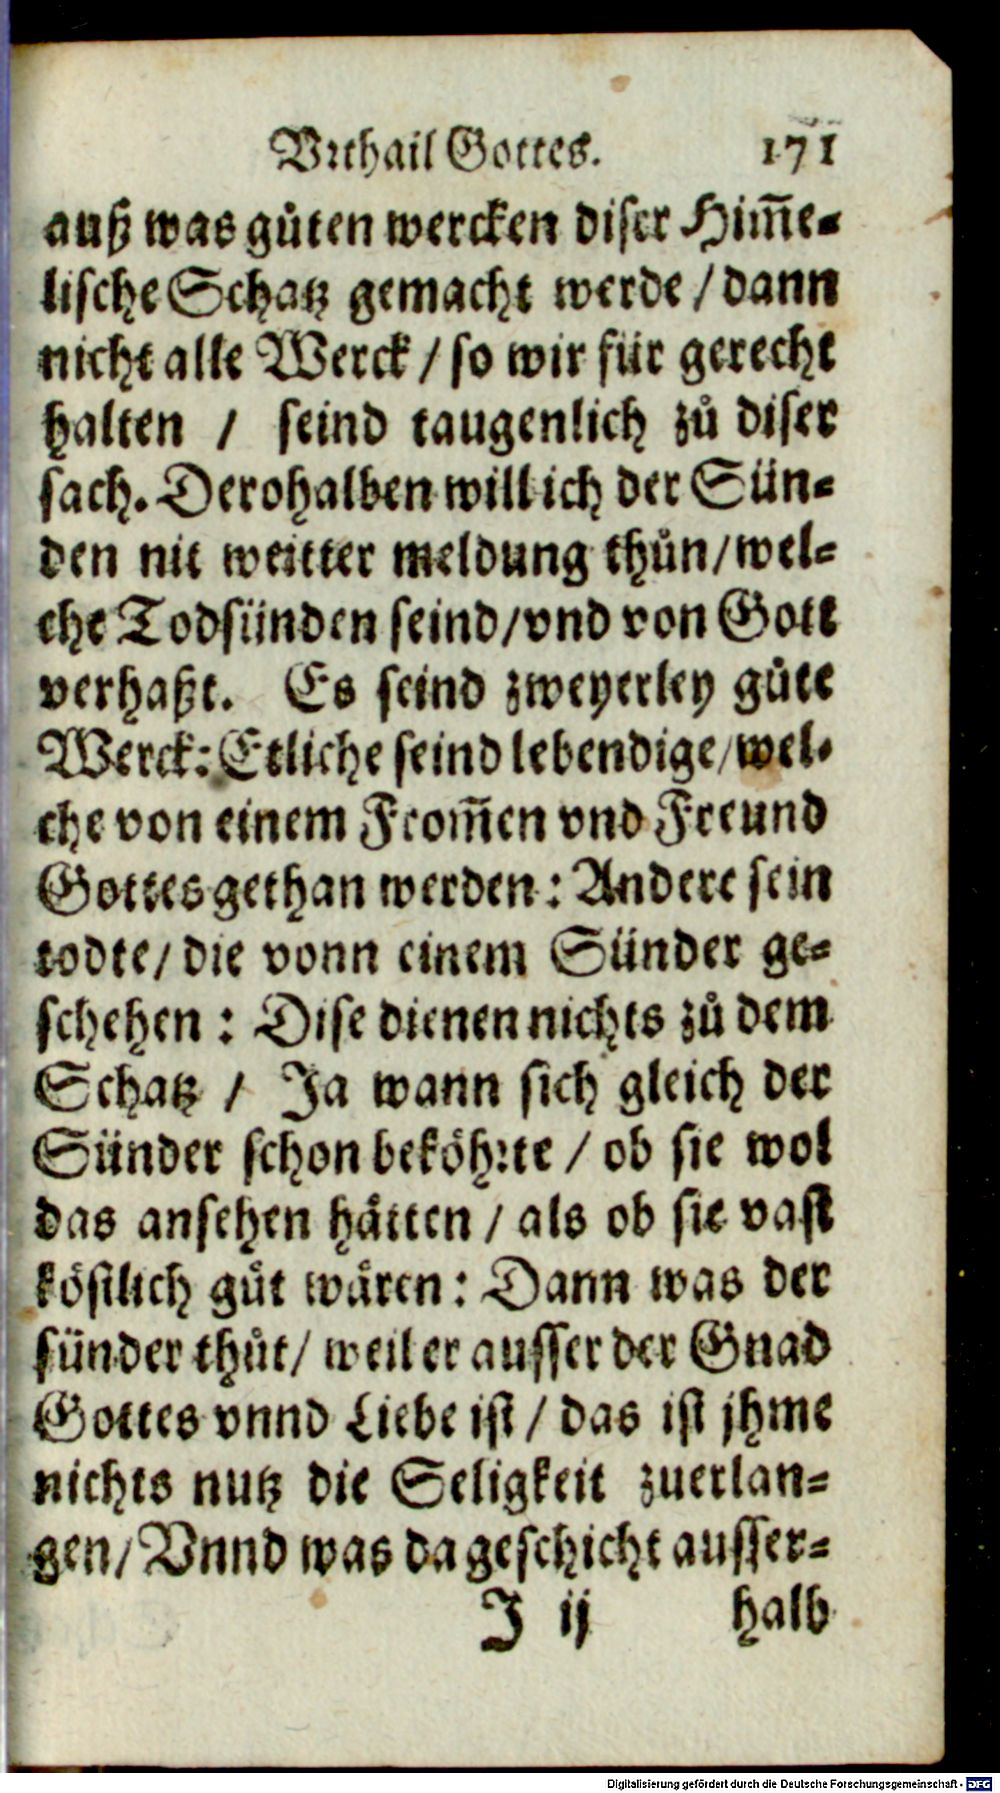 Vrthail Gottes. 171
auß was gůten wercken diser Him̃e-
lische Schatz gemacht werde / dann
nicht alle Werck / so wir für gerecht
halten / seind taugenlich zů diser
sach. Derohalben will ich der Sün-
den nit weitter meldung thůn / wel-
che Todsünden seind / vnd von Gott
verhaßt. Es seind zweyerley gůte
Werck: Etliche seind lebendige / wel-
che von einem From̃en vnd Freund
Gottes gethan werden: Andere sein
todte / die vonn einem Sünder ge-
schehen: Dise dienen nichts zů dem
Schatz / Ja wann sich gleich der
Sünder schon beköhrte / ob sie wol
das ansehen hätten / als ob sie vast
köstlich gůt wären: Dann was der
sünder thůt / weil er ausser der Gnad
Gottes vnnd Liebe ist / das ist jhme
nichts nutz die Seligkeit zuerlan-
gen / Vnnd was da geschicht ausser-
J ij halb
Digitalisierung gefördert durch die Deutsche Forschungsgemeinschaft - DFG